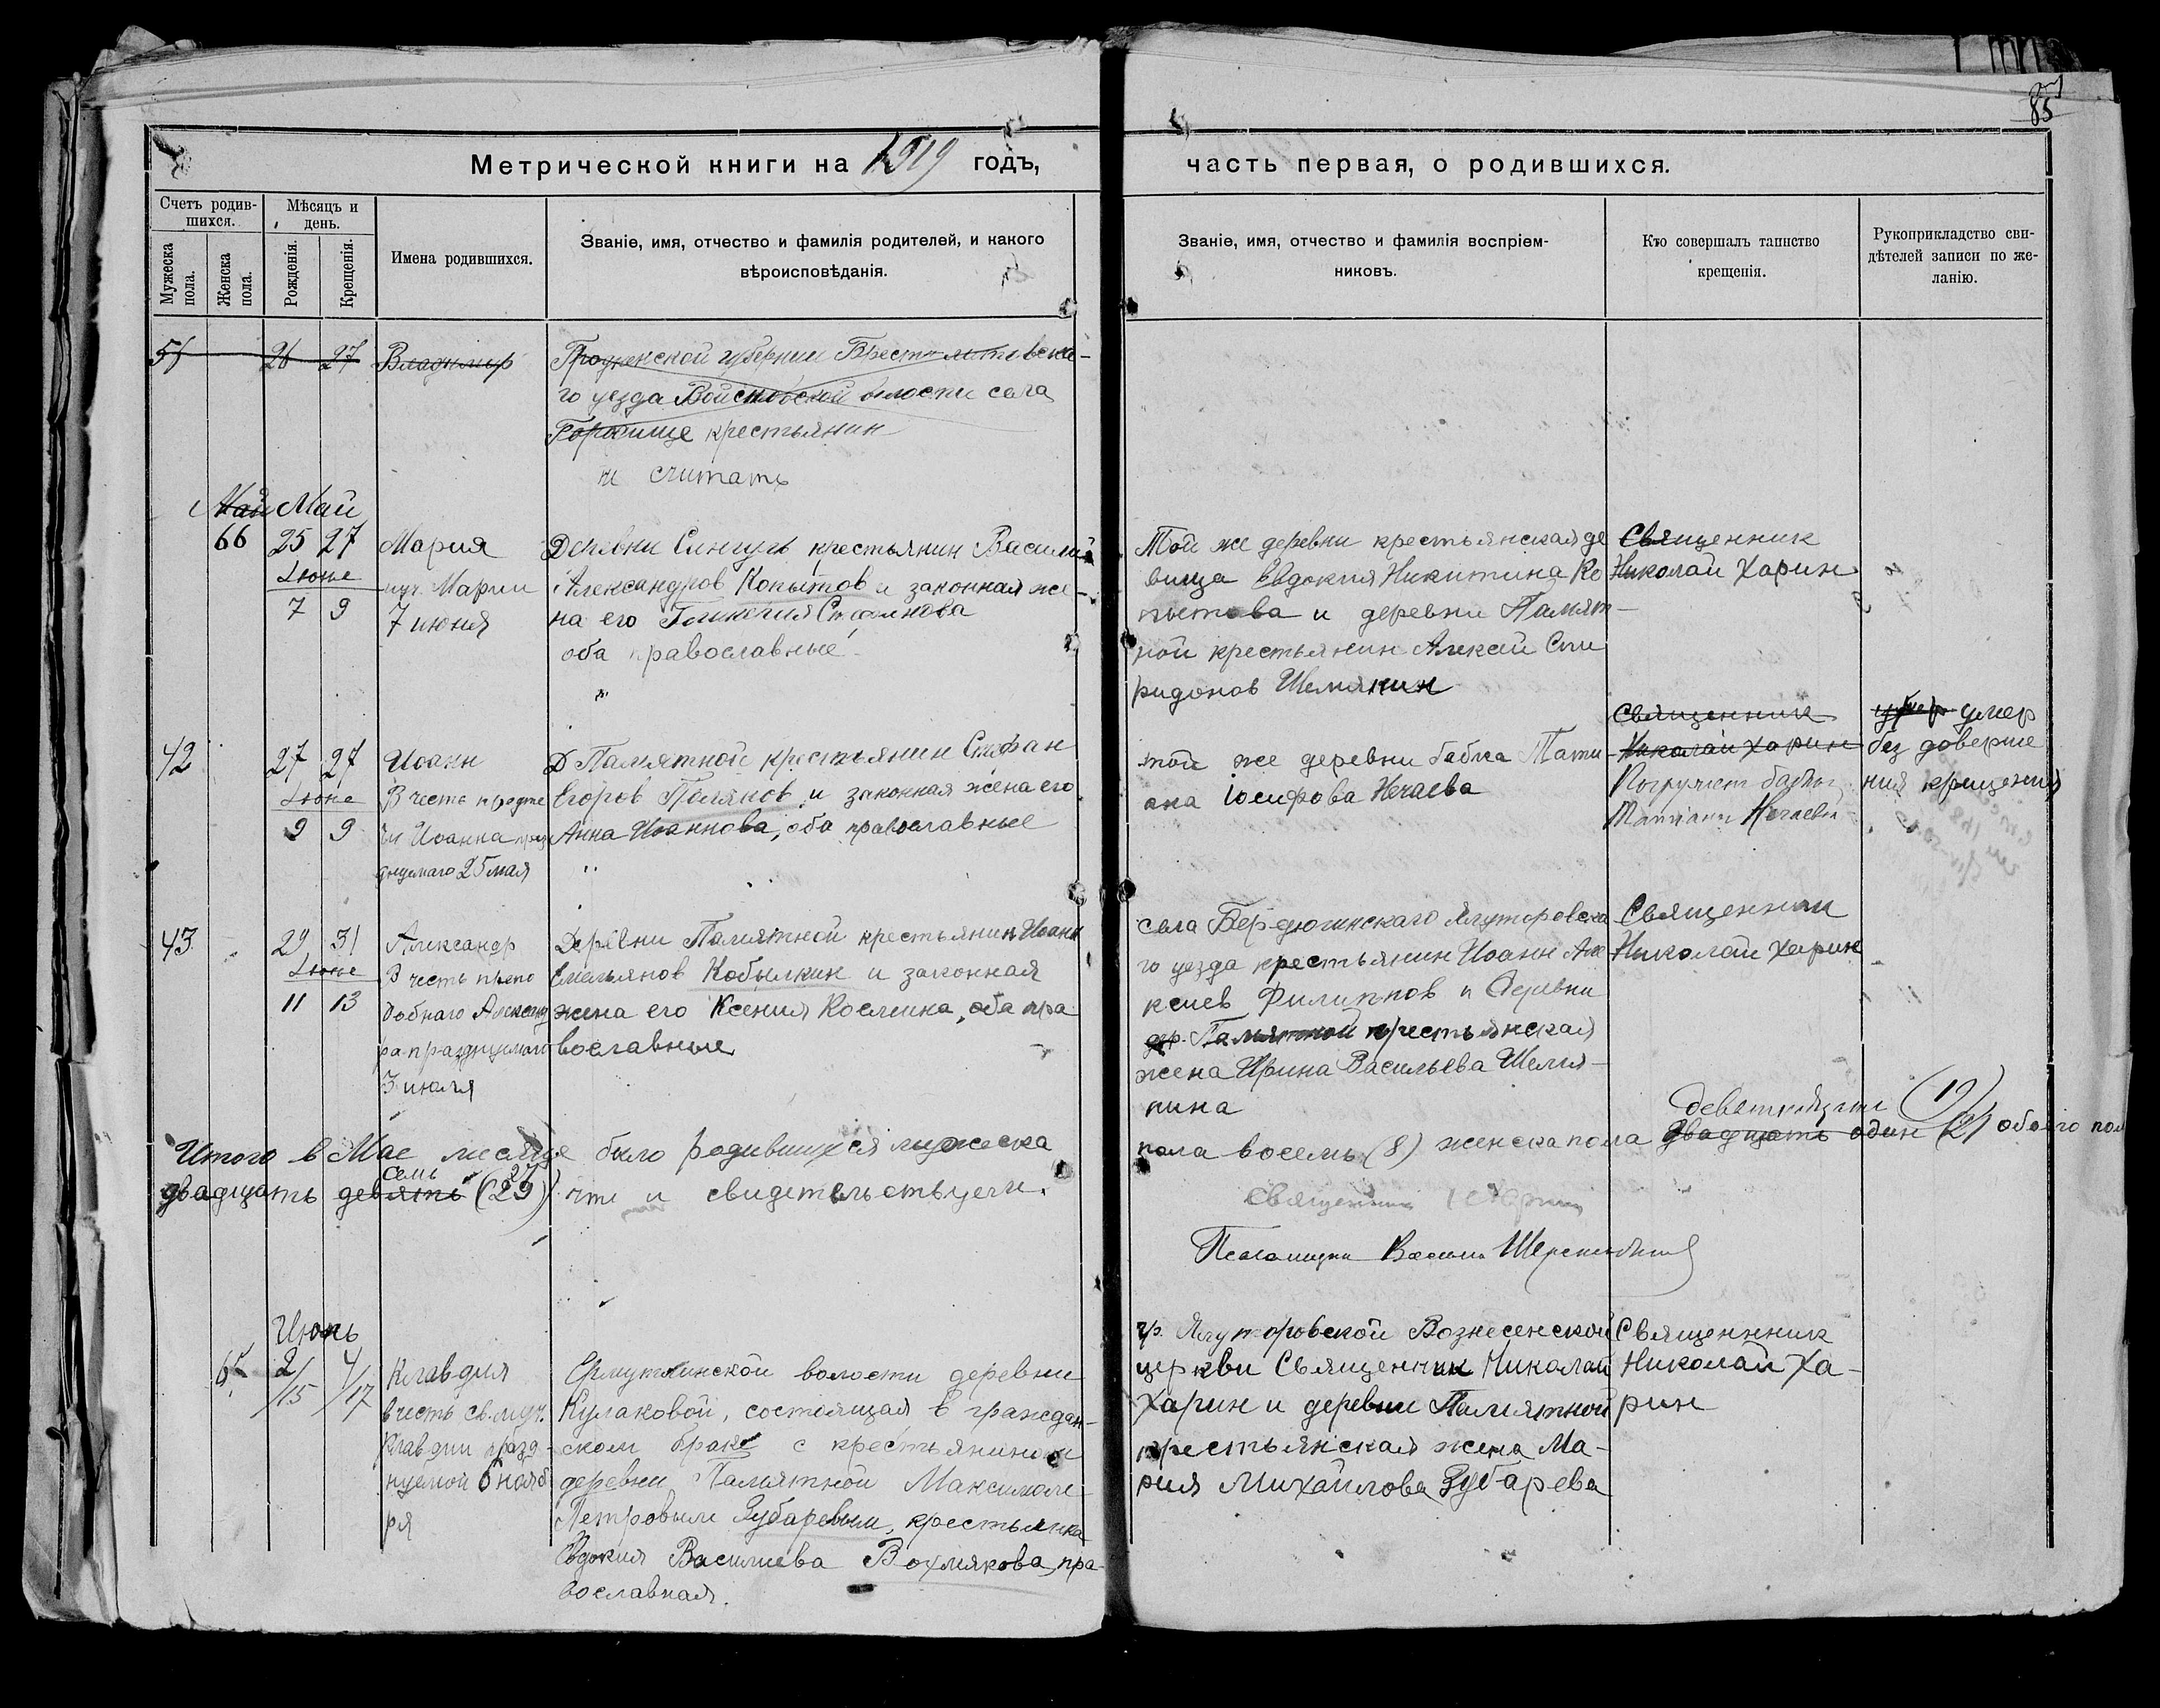 85
Метрической книги на 1919 годъ,
часть первая, о родившихся.
Счетъ родив-
шихся.
Мужеска
пола.
Женска
пола.
Мѣсяцъ и
день.
Рожденія.
Крещенія.
Имена родившихся.
Званіе, имя, отчество и фамилія родителей, и какого
вѣроисповѣданія.
Званіе, имя, отчество и фамилія воспріем-
никовъ.
Кто совершалъ таинство
крещенія.
Рукоприкладство сви-
дѣтелей записи по же-
ланію.
26 27 Владимир
Гродненской губернии Брестолитовска-
го уезда Войсковской волости села
крестьянин
не считать
Май Май
66 25 27
Июне
7 9
Мария
муч. Марии
7 июня
Деревни Сингуль крестьянин Василий
Александров Копытов и законная же-
на его
оба православные
Той же деревни крестьянская де
вица Евдокия Никитина Ко
пытова и деревни Памят-
ной крестьянин Алексей Спи
ридонов Шемякин
Священник
Николай Харин
42 27 27
Июне
9 9
Иоанн
В честь предте
чи Иоанна праз
днуемаго 25 мая
Д Памятной крестьянин Стефан
Егоров Поляков и законная жена его
Анна Иоаннова, оба православные
той же деревни бабка Тати-
ана Иосифова Нечаева
Священник
Николай Харин
Погружен бабкой
Татианой Нечаевой
умер умер
без доверше
ния крещения
43 29 31
Июне
11 13
Александр
В честь препо
добнаго Александ
ра празднуемаго
3 июля
Деревни Памятной крестьянин Иоанн
Емельянов Кобылкин и законная
жена его Ксения, оба пра
вославные
села Бердюгинскаго Ялуторовска
го уезда крестьянин Иоанн Але
ксиев Филиппов и Деревни
дер. Памятной крестьянская
жена Ирина Васильева Шемя-
кина
Священник
Николай Харин
Итого в Мае месяце было родившихся мужеска
пола восемь (8) женска пола двадцать один (21 обоего пол
девятнадцать (19)
двадцать девять (29) что и свидетельствуем.
семь 27
Священник Харин
Псаломщик Василий
Июнь
65 2/15 4/17
Клавдия
в честь св. муч.
Клавдии празд-
нуемой 6 нояб
ря
Емуртлинской волости деревни
Кулаковой, состоящая в граждан-
ском браке с крестьянином
деревни Памятной Максимом
Петровым Зубаревым, крестьянка
Евдокия Василиева Вохмякова, пра-
вославная.
гр. Ялуторовской Вознесенской
церкви Священник Николай
Харин и деревни Памятной
крестьянская жена Ма-
рия Михайлова Зубарева
Священник
Николай Ха-
рин